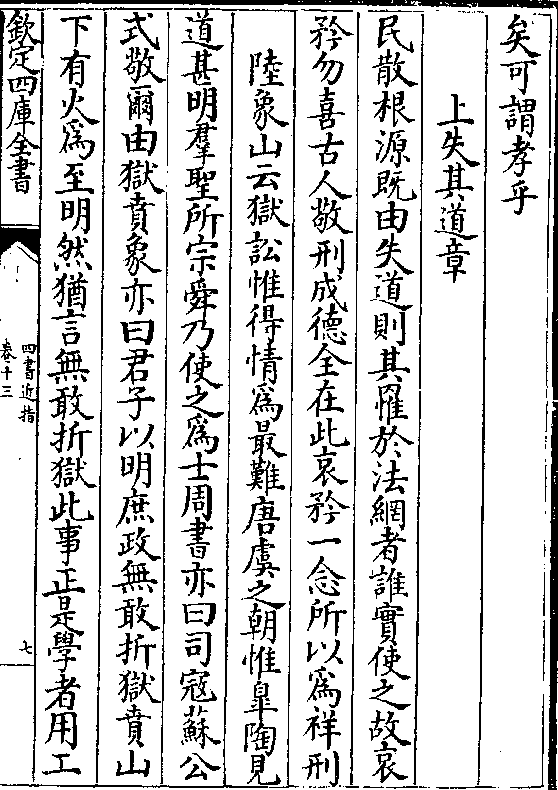 矣可謂孝乎
上失其道章
民散根源既由失道則其罹於法網者誰實使之故哀
矜勿喜古人敬刑成德全在此哀矜一念所以為祥刑
陸象山云獄訟惟得情為最難唐虞之朝惟臯陶見
道甚明羣聖所宗舜乃使之為士周書亦曰司寇蘇公
式敬爾由獄賁象亦曰君子以明庶政無敢折獄賁山
下有火為至明然猶言無敢折獄此事正是學者用工
欽定四庫全書
四書近指
卷十三
七